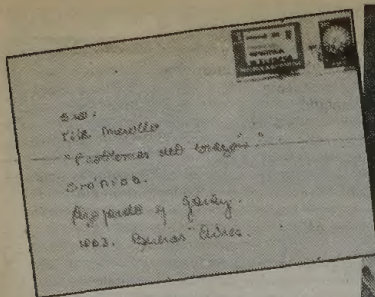 Sra.
Tita Merello
"Problemas del corazón."
Crónica.
Azopardo y Garay.
1063. Buenos Aires.